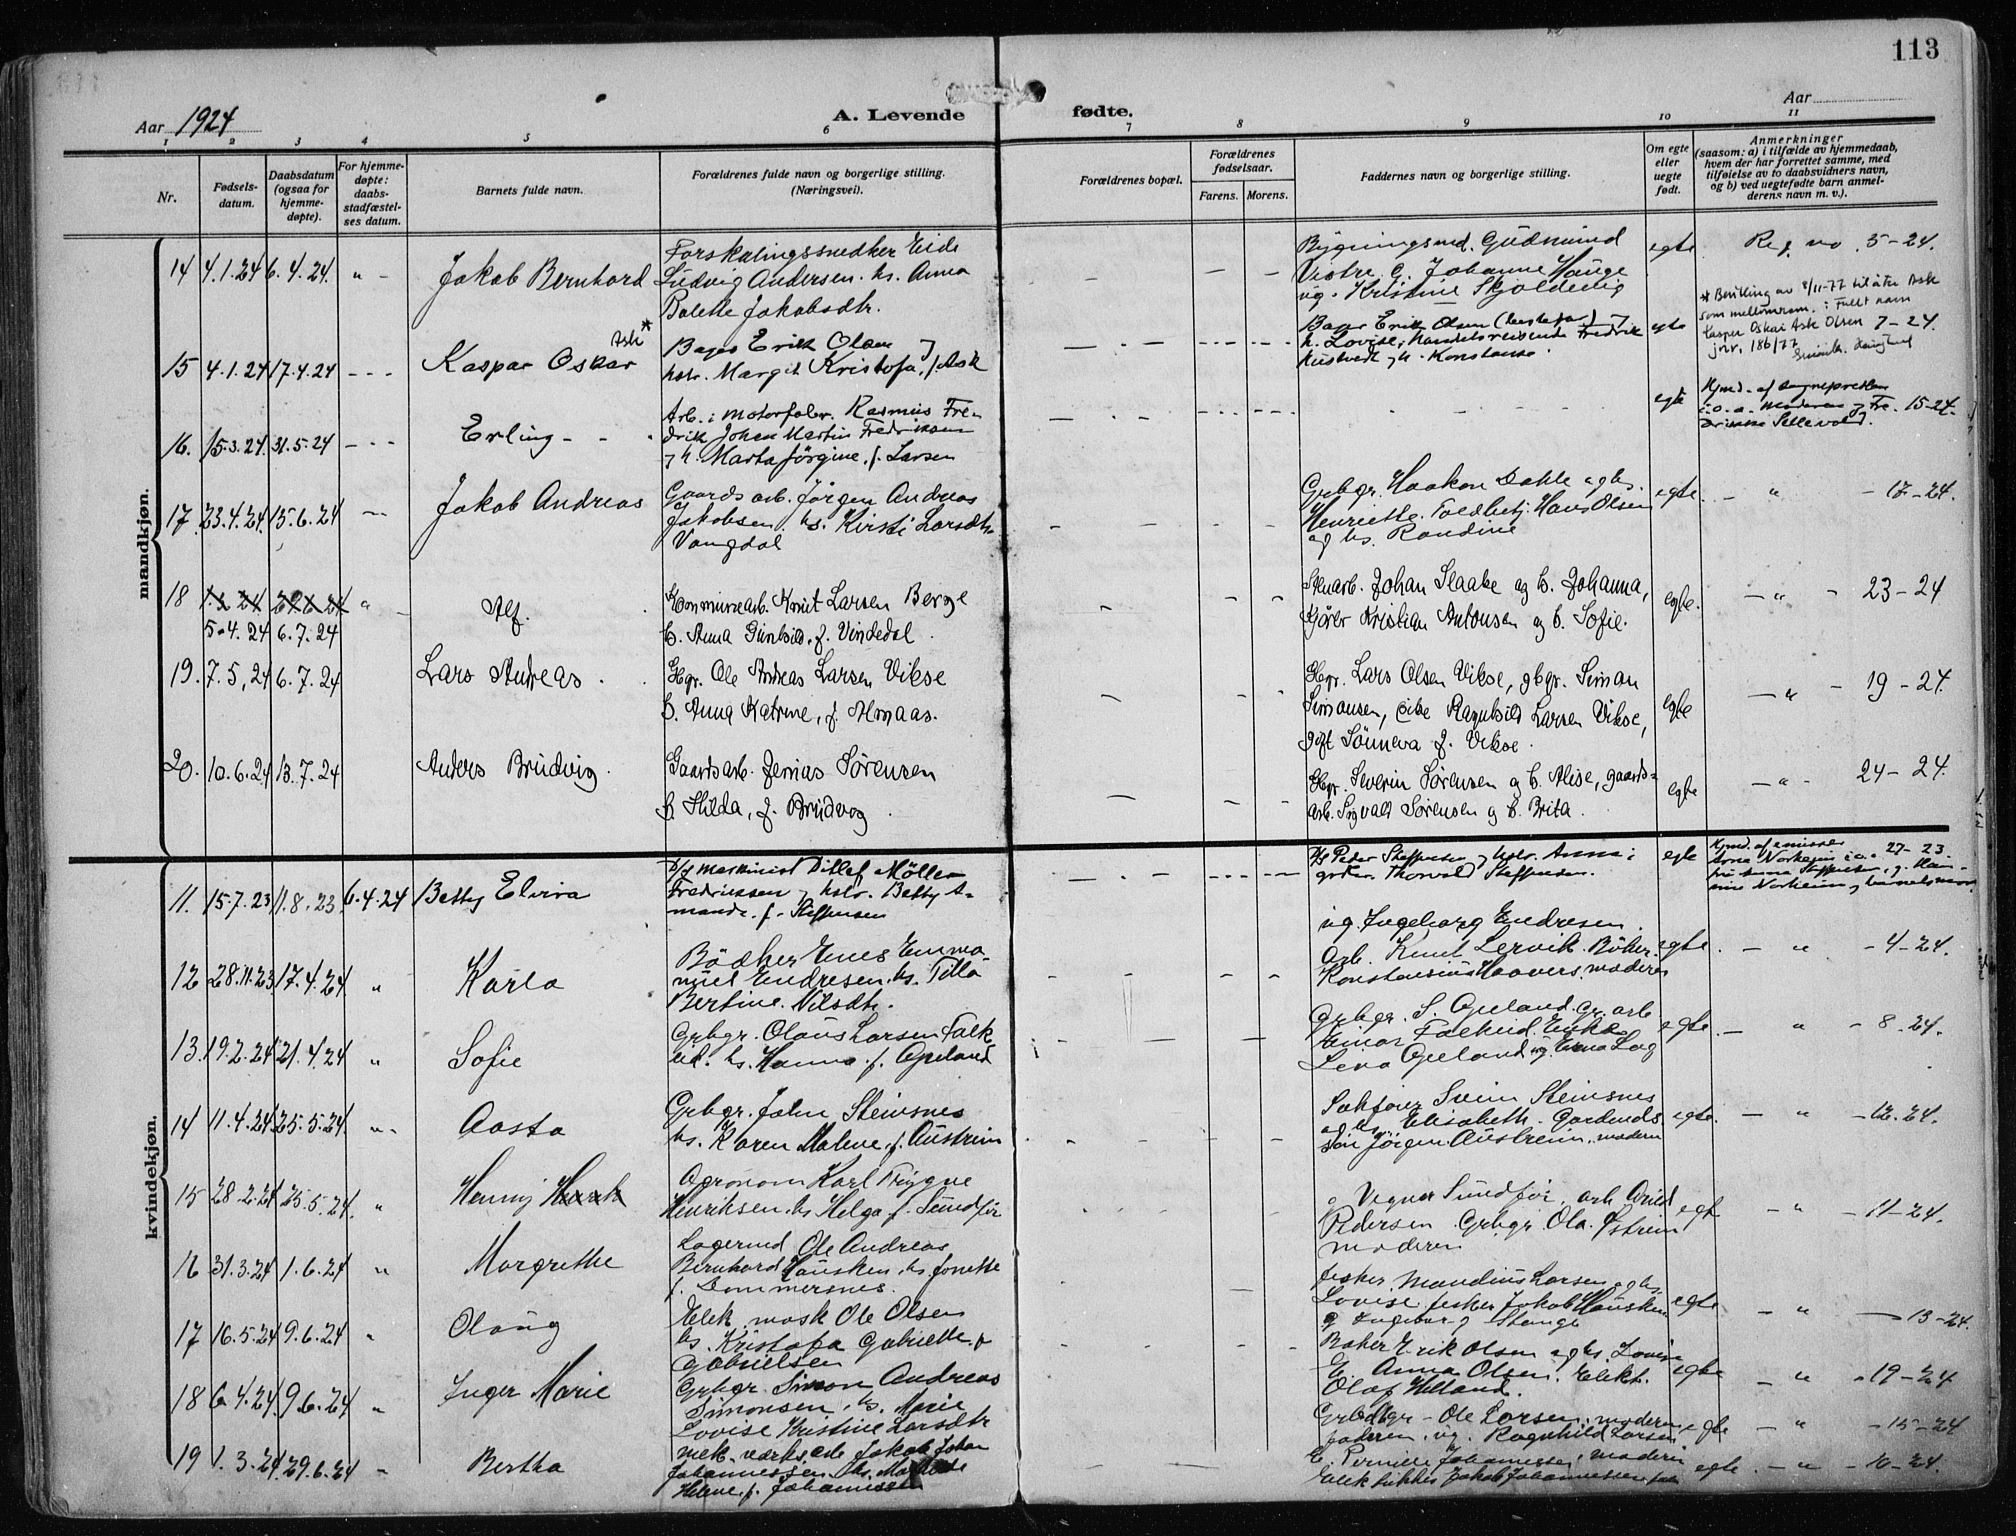 113
Aar 1924
A. Levende
fødte.
Aar
1 2 3 4 5 6 7 8 9 10 11
Nr.
Fødsels-
datum.
Daabsdatum
(ogsaa for
hjemme-
døpte).
For hjemme-
døpte:
daabs-
stadfæstel-
ses datum.
Barnets fulde navn.
Forældrenes fulde navn og borgerlige stilling.
(Næringsvei).
Forældrenes bopæl.
Forældrenes
fødselsaar.
Farens. Morens.
Faddernes navn og borgerlige stilling.
Om egte
eller
uegte
født.
Anmerkninger
(saasom: a) i tilfælde av hjemmedaab,
hvem der har forrettet samme, med
tilføielse av to daabsvidners navn,
og b) ved uegtefødte barn anmel-
derens navn m. v.).
mandkjøn.
14 4.1.24 6.4.24. " - Jakob Bernhard
Forskalingssnedker Eide
Ludvig Andersen. hs. Anna
Bolette Jakobsdtr.
Bygningsmd. Gudmund
Vestre. G. Johanne Hauge
ug. Kristine Skjoldevig
egte Reg no 5-24.
15 4.1.24 17.4.24 - - - Kaspar Oskar Ask*
Bager Erik Olsen
hstr. Margit Kristofa, f. Ask
Bager Erik Olsen (bestefar)
h. Lovise, handelsreisende Fredrik
h. Konstanse.
egte
* Bevilling av 8/11-77 til å ta Ask
som mellomnavn: Fullt navn
Casper Oskar Ask Olsen 7-24.
jnr. 186/77
16. 15.3.24. 31.5.24 - - - Erling - -
Arb. i motorfabr. Rasmus Fre-
drik Johan Martin Fredriksen
h. Marta Jørgine, f. Larsen
egte
Hjmd. af
15-24.
17. 23.4.24. 15.6.24 - - Jakob Andreas
Gaardsarb. Jørgen Andreas
Jakobsen, hs. Kirsti Larsdtr
Vangdal
Grbgr. Haakon Dahle og hs.
Henriette. Hans Olsen
og hs. Randine
egte. - " - 17-24.
18 1.2.24 29.6.24 " - Alf.
5.4.24 6.7.24
Kommunearb. Knut Larsen Berge
h. Anna Gunhild, f. Vindedal.
Stenarb. Johan Slaake og h. Johanna,
Kjører Kristian Antonsen og h. Sofie.
egte. - " - 23-24
19. 7.5.24 6.7.24 Lars Andreas
Gbgr. Ole Andreas Larsen Vikse
h. Anna Katrine, f. Amaas.
Gbgr. Lars Olsen Vikse, gbgr. Simon
Simonsen, pike Ragnhild Larsen Vikse,
gift Sønneva f. Vikse.
egte - " - 19-24.
20. 10.6.24 13.7.24 Anders Brudvig.
Gaardsarb. Jenias Sørensen
h. Hilda, f. Brudvog
Gbgr. Severin Sørensen og h. Alise, gaards-
arb. Sigvald Sørensen og h. Brita.
egte - " - 24-24.
kvindekjøn.
11. 15.7.23 11.8.23 6.4.24 Betty Elvira
D/S maskinist Ditlef Möller
Fredriksen hstr. Betty A-
mande, f. Steffensen
Peder Steffensen, hstr. Anna;
Thorvald Steffensen.
egte
Hjmd. af
Arne Norheim i.o. 27-23
12 28.11.23 17.4.24 " Karla
Bødker Enes Emma-
nuel Endresen. hs. Tilla
Bertine Nilsdtr.
ug. Ingeborg Endresen.
Arb. Knut Lervik. Bøker
Konstansius Haavers, moderen
egte. - " - 4-24.
13. 19.2.24 21.4.24 " Sofie
Grbgr. Olaus Larsen Falk
eid. hs. Hanna f. Opeland
Grbgr. S. Opeland. Gr. arb
Einar Falkeid. Enke
Lina Opeland ug. Erna Lag
egte. - " - 8.24.
14 11.4.24. 25.5.24. " - Aasta
Grbgr. John Steinsnes
hs. Karen Malene, f. Austrein
Sakfører Svein Steinsnes
og hs. Elisabeth. Gaardmds
søn Jørgen Austrein, moderen
egte. - " - 12.24.
15 28.2.24 25.5.24. " Henny
Agronom Karl Trygve
Henriksen. hs Helga f. Sundfør
Vegner Sundfør, arb. Arvid
Pedersen. Grbgr. Ola Østrein
moderen
egte - " - 11-24.
16 31.3.24 1.6.24 " Margrethe
Lagermd Ole Andreas
Bernhard Hausken, hs. Jonette
f. Dommersnes.
fisker Mandius Larsen og hs.
Lovise fisker Jakob Hausken
g Ingebor g Stange
egte - " - 13-24.
17 16.5.24 9.6.24 " Olaug
Elek. mask Ole Olsen
hs. Kristofa Gabriette f
Gabrielsen
Baker Erik Olsen og hs. Lovise
E. Anna Olsen. Elekt.
Olaf Helland.
egte - " - 19-24
18 6.4.24. 9.6.24 " Inger Marie
Grbgr. Simon Andreas
Simonsen, hs. Marie
Lovise Kristine Larsdtr
Grbgr - Ole Larsen, moderen
faderen, ug. Ragnhild Larsen
egte - " - 15-24
19 1.3.24. 29.6.24 " Bertha
Mek. Jakob Johan
Johannessen hs.
Helene f. Johannessen
E. Pernille Johannessen moderen
Jakob Johannessen
egte. - " - 10-24.